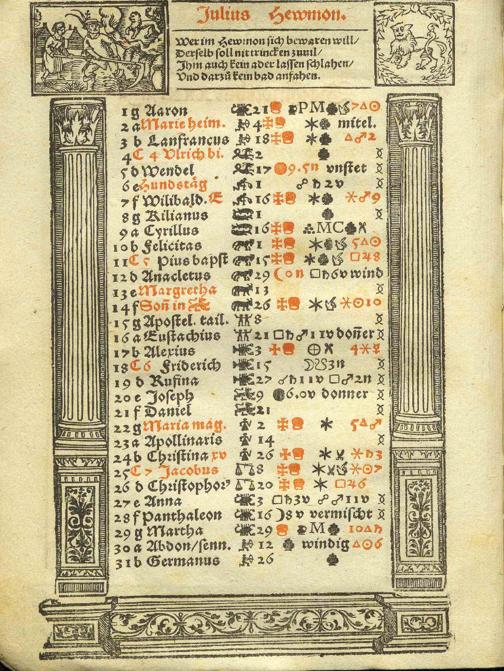 Julius Hewmon.
Wer im Hewmonon sich bewaren will/
Derselb soll nit trincken zuuil/
Ihm auch kein ader lassen schlahen/
Vnd darzů kein bad anfahen.
1 g Aaron 21 PM △☉
2 a Marie heim. 4 ✶ mitel.
3 b Lanfrancus 18 ✶ △♂2
4 C 4 Vlrich bi. 2
5 d Wendel 17 9.5n vnstet
6 e Hundstäg 1 ☍♄2v
7 f Wilibald. E 16 ✶ ✶♂9
8 g Kilianus 1
9 a Cyrillus 16 MC
10 b Felicitas 1 ✶ 5△☉
11 C 5 Pius bapst 15 ✶ □48
12 d Anacletus 29 ☾on □♄6v wind
13 e Margretha
14 f Soñ in 26 ✶ ✶☉10
15 g Apostel. tail. 8
16 a Eustachius 21 □♄♂11v doñer
17 b Alexius 3 4✶
18 C 6 Friderich 15 3n
19 d Rufina 27 ☌♄11v □♂2n
20 e Joseph 9 6.0v donner
21 f Daniel 21
22 g Maria mag. 2 ✶ 5△♂
23 a Apollinaris 14
24 b Christina xv 26 ✶ ✶♄3
25 C 7 Jacobus 8 ✶ ✶☉7
26 d Christophor' 20 ✶ □46
27 e Anna 3 □♄3v ☍♂11v
28 f Panthaleon 16 8v vermischt
29 g Martha 29 M 10△♄
30 a Abdon/senn. 12 windig △☉6
31 b Germanus 26